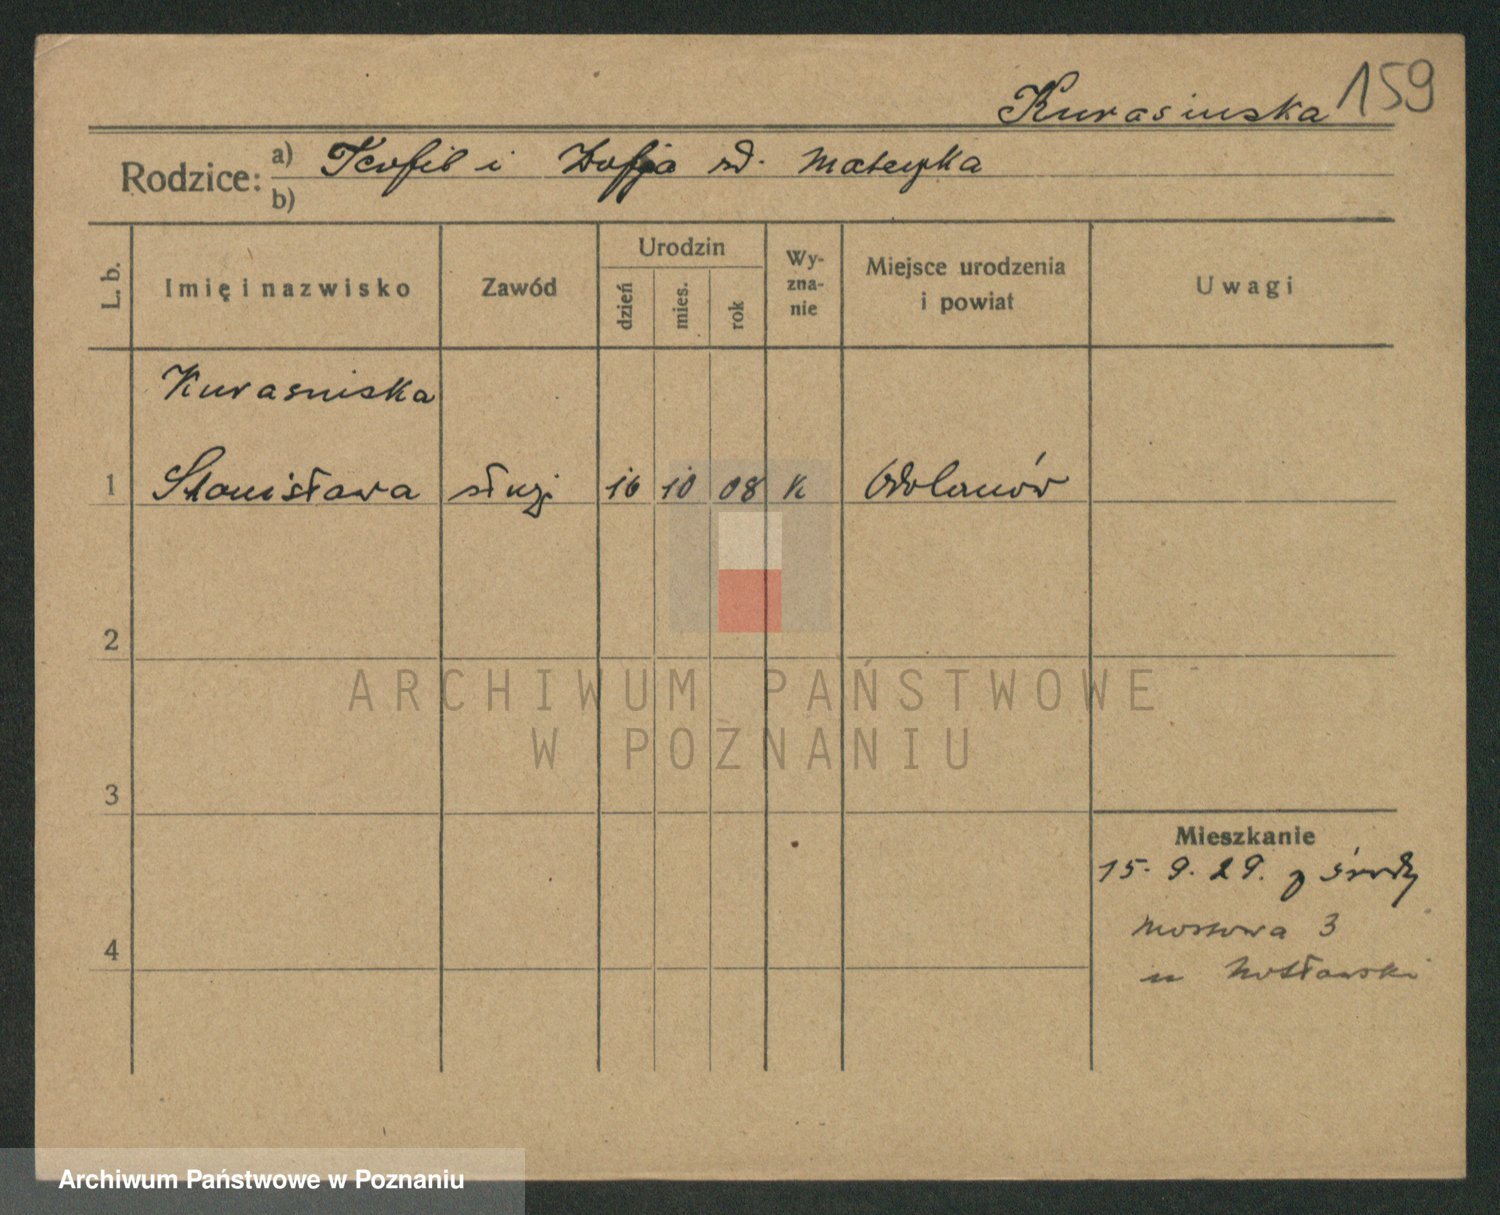 159
Kurasinska
Rodzice: a) Teofil i Zofja rd. Matecka
b)
L. b. Imię i nazwisko Zawód Urodzin dzień mies. rok Wyznanie Miejsce urodzenia i powiat Uwagi
Kurasinska
1 Stanisława służ. 16 10 08 K Odolanów
2
ARCHIWUM PAŃSTWOWE
W POZNANIU
3
Mieszkanie
15. 9. 29. z Środy
Mostowa 3
4
u
Archiwum Państwowe w Poznaniu